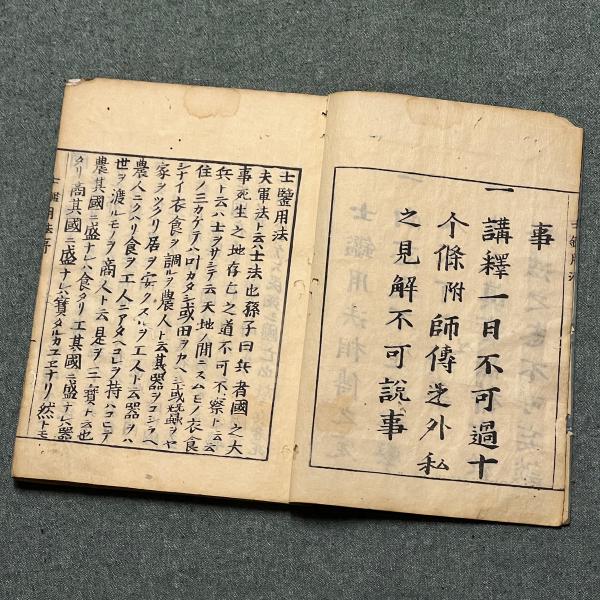 事
一講釋一日不可過十
个條附師傳之外私
之見解不可說事
士鑒用法
夫軍法ト云ハ士法也孫子曰兵者國之大
事死生之地存亡之道不可不察ト云云
兵ト云ハ士ヲサシテ云天地ノ間ニスムモノ衣食
住ノ三カケテハ叶カタシ或田ヲカヘシ或蠶ヲヤ
シナイ衣食ヲ調ルヲ農人ト云其器ヲコシラヘ
家ヲツクリ居ヲ安クスルヲ工人ト云器ヲハ
農人ニクハリ食ヲ工人ニアタヘコレヲ持ハコヒテ
世ヲ渡ルモノヲ商人ト云是ヲ三寳ト云也
農其國ニ盛ナレハ食タリ工其國ニ盛ナレハ器
タリ商其國ニ盛ナレハ寳タルカユエナリ然トモ
士鑑用法序